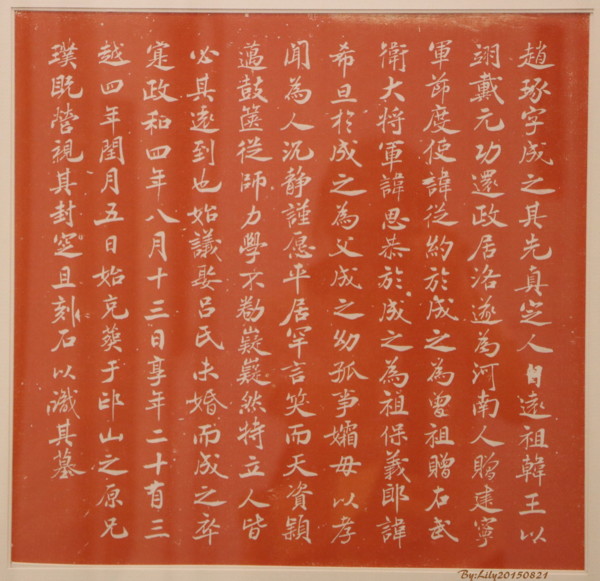 趙琢字成之其先真定人自遠祖韓王以
翊戴元功還政居洛遂為河南人贈建寧
軍節度使諱従約於成之為曽祖贈右武
衛大将軍諱思恭於成之為祖保義郎諱
希旦於成之為父成之幼孤事孀母以孝
聞為人沉静謹愿平居罕言笑而天資穎
邁鼓篋従師力學不勌嶷嶷然特立人皆
必其遠到也始議娶呂氏未婚而成之卒
寔政和四年八月十三日享年二十有三
越四年閏月五日始克葬于邙山之原兄
璞既營視其封窆且刻石以識其墓
By:Lily20150821